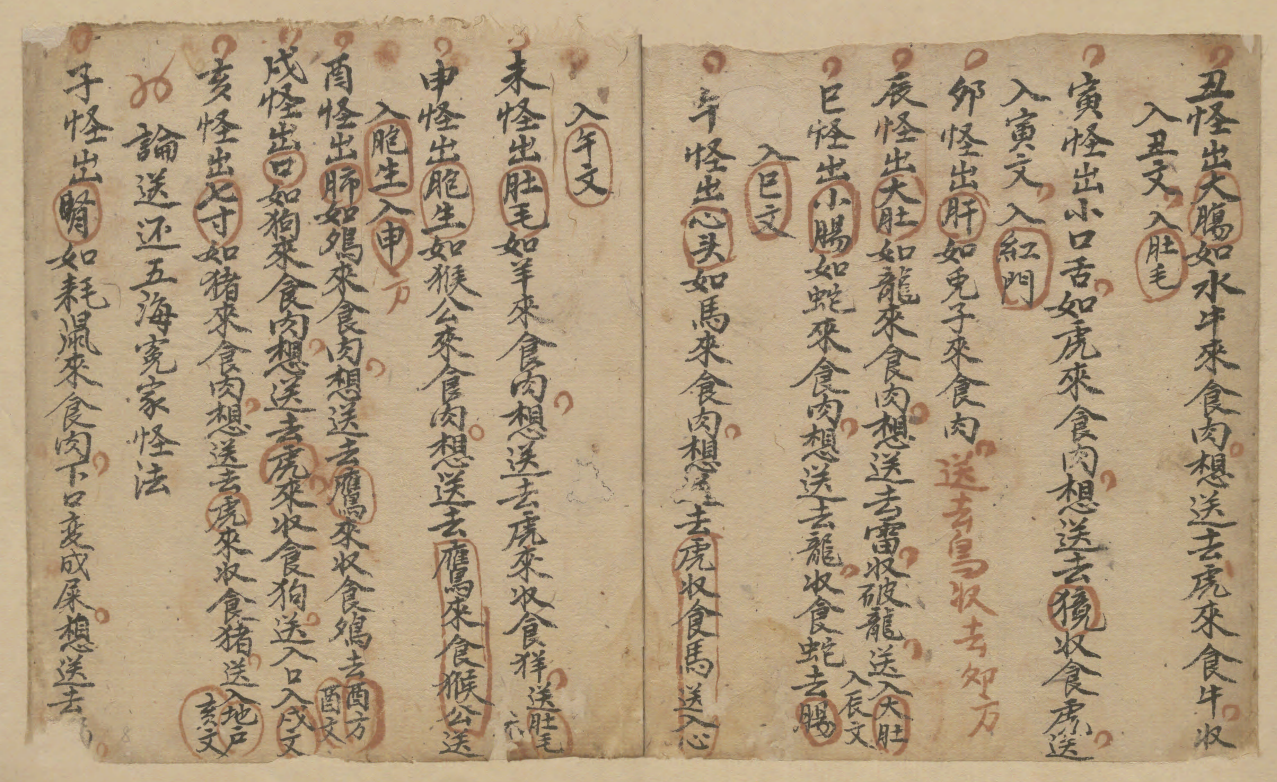 丑怪出大膓如水牛來食肉想送去虎來食牛收
入丑文入肚毛
寅怪出小口舌如虎來食肉想送去獍收食虎送
入寅文入紅門
卯怪出肝如兎子來食肉送去鳥收去卯方
辰怪出大肚如龍來食肉想送去雷收破龍送入大肚
入辰文
巳怪出小膓如蛇來食肉想送去龍收食蛇去膓
入巳文
午怪出心头如馬來食肉想送去虎收食馬送入心
入午文
未怪出肚毛如羊來食肉想送去虎來收食羊送肚毛
申怪出胞生如猴公來食肉想送去鷹來食猴公送
入胞生入申方
酉怪出肺如鷄來食肉想送去鷹來收食鷄去酉方
酉文
戌怪出口如狗來食肉想送去虎來收食狗送入口入戌文
亥怪出七寸如猪來食肉想送去虎來收食猪送入地戶
亥文
論送还五海冤家怪法
子怪出腎如耗鼠來食肉下口变成屎想送去